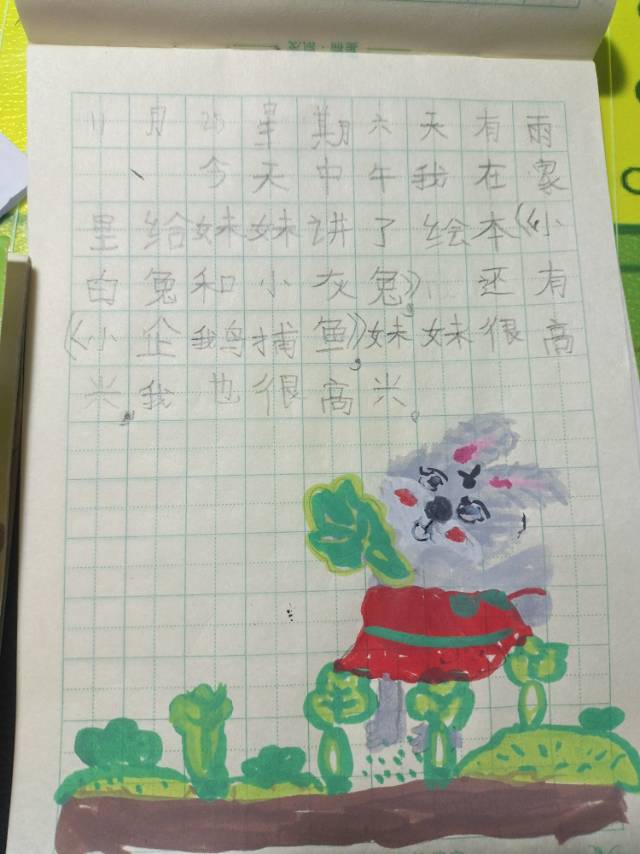 11月28星期六天有雨
今天中午我在家
里给妹妹讲了绘本《小
白兔和小灰兔》,还有
《小企鹅捕鱼》,妹妹很高
兴,我也很高兴。